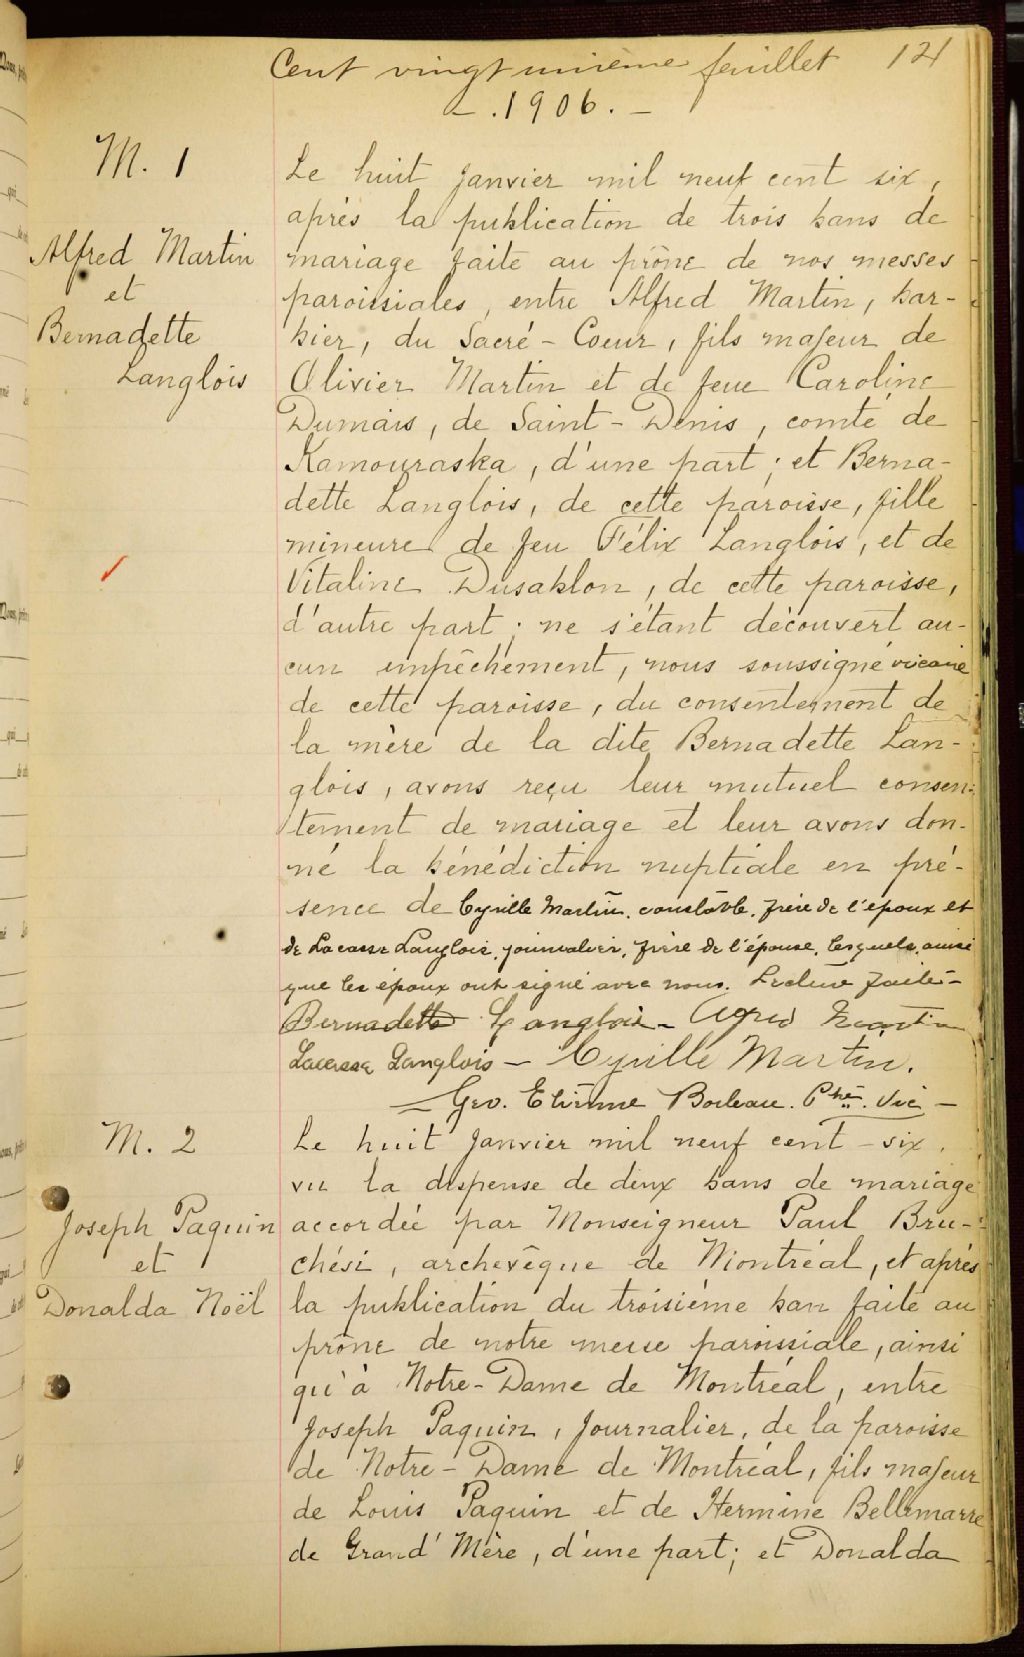 Cent vingt unième feuillet 121
- . 1906 . -
M. 1
Alfred Martin
et
Bernadette
Langlois
Le huit Janvier mil neuf cent six,
après la publication de trois bans de
mariage faite au prône de nos messes
paroissiales, entre Alfred Martin, bar-
bier, du Sacré-Coeur, fils majeur de
Olivier Martin et de feue Caroline
Dumais, de Saint-Denis, comté de
Kamouraska, d'une part; et Berna-
dette Langlois, de cette paroisse, fille
mineure de feu Félix Langlois, et de
Vitaline Dusablon, de cette paroisse,
d'autre part; ne s'étant découvert au-
cun empêchement, nous soussigné vicaire
de cette paroisse, du consentement de
la mère de la dite Bernadette Lan-
glois, avons reçu leur mutuel consen-
tement de mariage et leur avons don-
né la bénédiction nuptiale en pré-
sence de Cyrille Martin, constable, frère de l'époux et
de Lacasse Langlois, journalier, frère de l'épouse, lesquels, ainsi
que les époux ont signé avec nous. Lecture faite -
Bernadette Langlois - Alfred Martin
Lacasse Langlois - Cyrille Martin.
- Geo. Etienne Boileau. Ptre. Vic -
M. 2
Joseph Paquin
et
Donalda Noël
Le huit Janvier mil neuf cent-six,
vu la dispense de deux bans de mariage
accordée par Monseigneur Paul Bru-
chési, archevêque de Montréal, et après
la publication du troisième ban faite au
prône de notre messe paroissiale, ainsi
qu'à Notre-Dame de Montréal, entre
Joseph Paquin, Journalier, de la paroisse
de Notre-Dame de Montréal, fils majeur
de Louis Paquin et de Hermine Bellemarre
de Grand'Mère, d'une part; et Donalda